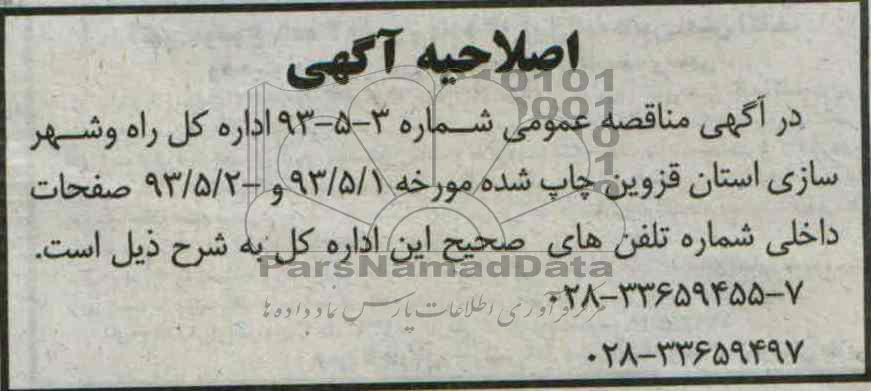 اصلاحیه آگهی
در آگهی مناقصه عمومی شماره ۳-۵-۹۳ اداره کل راه وشهر
سازی استان قزوین چاپ شده مورخه ۹۳/۵/۱ و -۹۳/۵/۲ صفحات
داخلی شماره تلفن های صحیح این اداره کل به شرح ذیل است.
ParsNamadData
۰۲۸-۳۳۶۵۹۴۵۵-۷
مرکز فرآوری اطلاعات پارس نماد داده ها
۰۲۸-۳۳۶۵۹۴۹۷